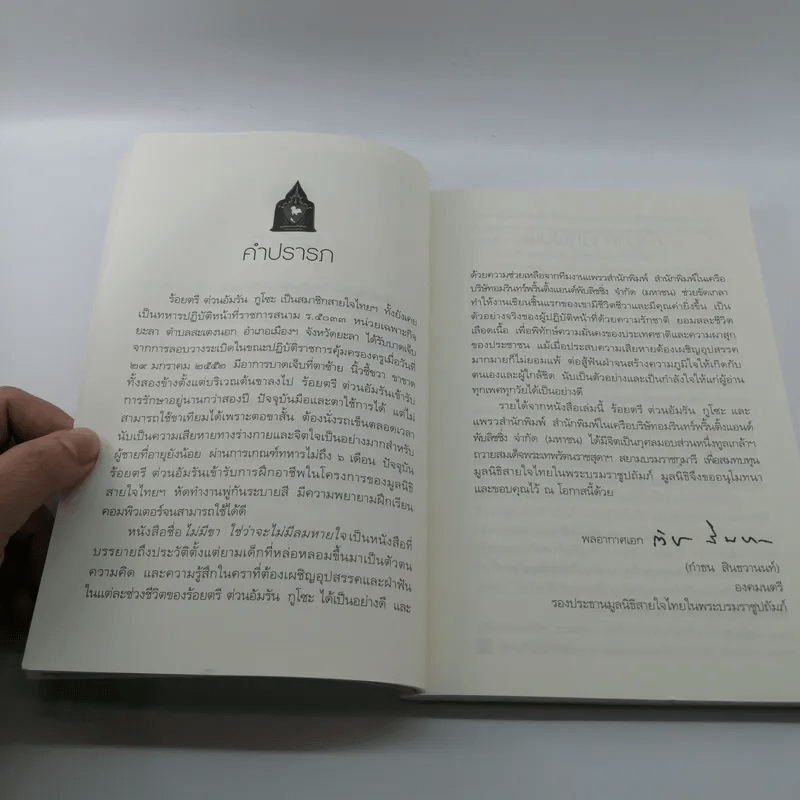 คำปรารภ
ร้อยตรี ต่วนอัมรัน กูโซะ เป็นสมาชิกสายใจไทยฯ ทั้งยังเคย
เป็นทหารปฏิบัติหน้าที่ราชการสนาม ร.๕๐๓๓ หน่วยเฉพาะกิจ
ยะลา ตำบลสะเตงนอก อำเภอเมืองฯ จังหวัดยะลา ได้รับบาดเจ็บ
จากการลอบวางระเบิดในขณะปฏิบัติราชการคุ้มครองครูเมื่อวันที่
๒๙ มกราคม ๒๕๕๒ มีอาการบาดเจ็บที่ตาซ้าย นิ้วชี้ขวา ขาขาด
ทั้งสองข้างตั้งแต่บริเวณต้นขาลงไป ร้อยตรี ต่วนอัมรันเข้ารับ
การรักษาอยู่นานกว่าสองปี ปัจจุบันมือและตาใช้การได้ แต่ไม่
สามารถใช้ขาเทียมได้เพราะตอขาสั้น ต้องนั่งรถเข็นตลอดเวลา
นับเป็นความเสียหายทางร่างกายและจิตใจเป็นอย่างมากสำหรับ
ผู้ชายที่อายุยังน้อย ผ่านการเกณฑ์ทหารไม่ถึง ๖ เดือน ปัจจุบัน
ร้อยตรี ต่วนอัมรันเข้ารับการฝึกอาชีพในโครงการของมูลนิธิ
สายใจไทยฯ หัดทำงานพู่กันระบายสี มีความพยายามฝึกเรียน
คอมพิวเตอร์จนสามารถใช้ได้ดี
หนังสือชื่อ ไม่มีขา ใช่ว่าจะไม่มีลมหายใจ เป็นหนังสือที่
บรรยายถึงประวัติตั้งแต่ยามเด็กที่หล่อหลอมขึ้นมาเป็นตัวตน
ความคิด และความรู้สึกในคราที่ต้องเผชิญอุปสรรคและฝ่าฟัน
ในแต่ละช่วงชีวิตของร้อยตรี ต่วนอัมรัน กูโซะ ได้เป็นอย่างดี และ
ด้วยความช่วยเหลือจากทีมงานแพรวสำนักพิมพ์ สำนักพิมพ์ในเครือ
บริษัทอมรินทร์พริ้นติ้งแอนด์พับลิชชิ่ง จำกัด (มหาชน) ช่วยขัดเกลา
ทำให้งานเขียนชิ้นแรกของเขามีชีวิตชีวาและมีคุณค่ายิ่งขึ้น เป็น
ตัวอย่างจริงของผู้ปฏิบัติหน้าที่ด้วยความรักชาติ ยอมสละชีวิต
เลือดเนื้อ เพื่อพิทักษ์ความมั่นคงของประเทศชาติและความผาสุก
ของประชาชน แม้เมื่อประสบความเสียหายต้องเผชิญอุปสรรค
มากมายก็ไม่ยอมแพ้ ต่อสู้ฟันฝ่าจนสร้างความภูมิใจให้เกิดกับ
ตนเองและผู้ใกล้ชิด นับเป็นตัวอย่างและเป็นกำลังใจให้แก่ผู้อ่าน
ทุกเพศทุกวัยได้เป็นอย่างดี
รายได้จากหนังสือเล่มนี้ ร้อยตรี ต่วนอัมรัน กูโซะ และ
แพรวสำนักพิมพ์ สำนักพิมพ์ในเครือบริษัทอมรินทร์พริ้นติ้งแอนด์
พับลิชชิ่ง จำกัด (มหาชน) ได้มีจิตเป็นกุศลมอบส่วนหนึ่งทูลเกล้าฯ
ถวายสมเด็จพระเทพรัตนราชสุดาฯ สยามบรมราชกุมารี เพื่อสมทบทุน
มูลนิธิสายใจไทยในพระบรมราชูปถัมภ์ มูลนิธิจึงขออนุโมทนา
และขอบคุณไว้ ณ โอกาสนี้ด้วย
พลอากาศเอก
(กำธน สินธวานนท์)
องคมนตรี
รองประธานมูลนิธิสายใจไทยในพระบรมราชูปถัมภ์